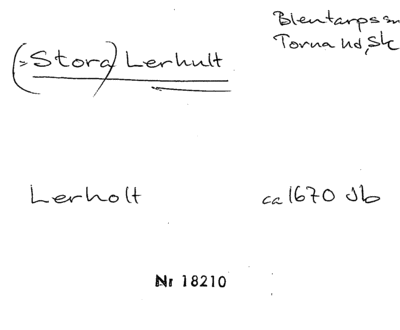 Blentarps sn
Torna hd, Sk
(>Stora) Lerhult
Lerholt ca 1670 Jb
Nr 18210